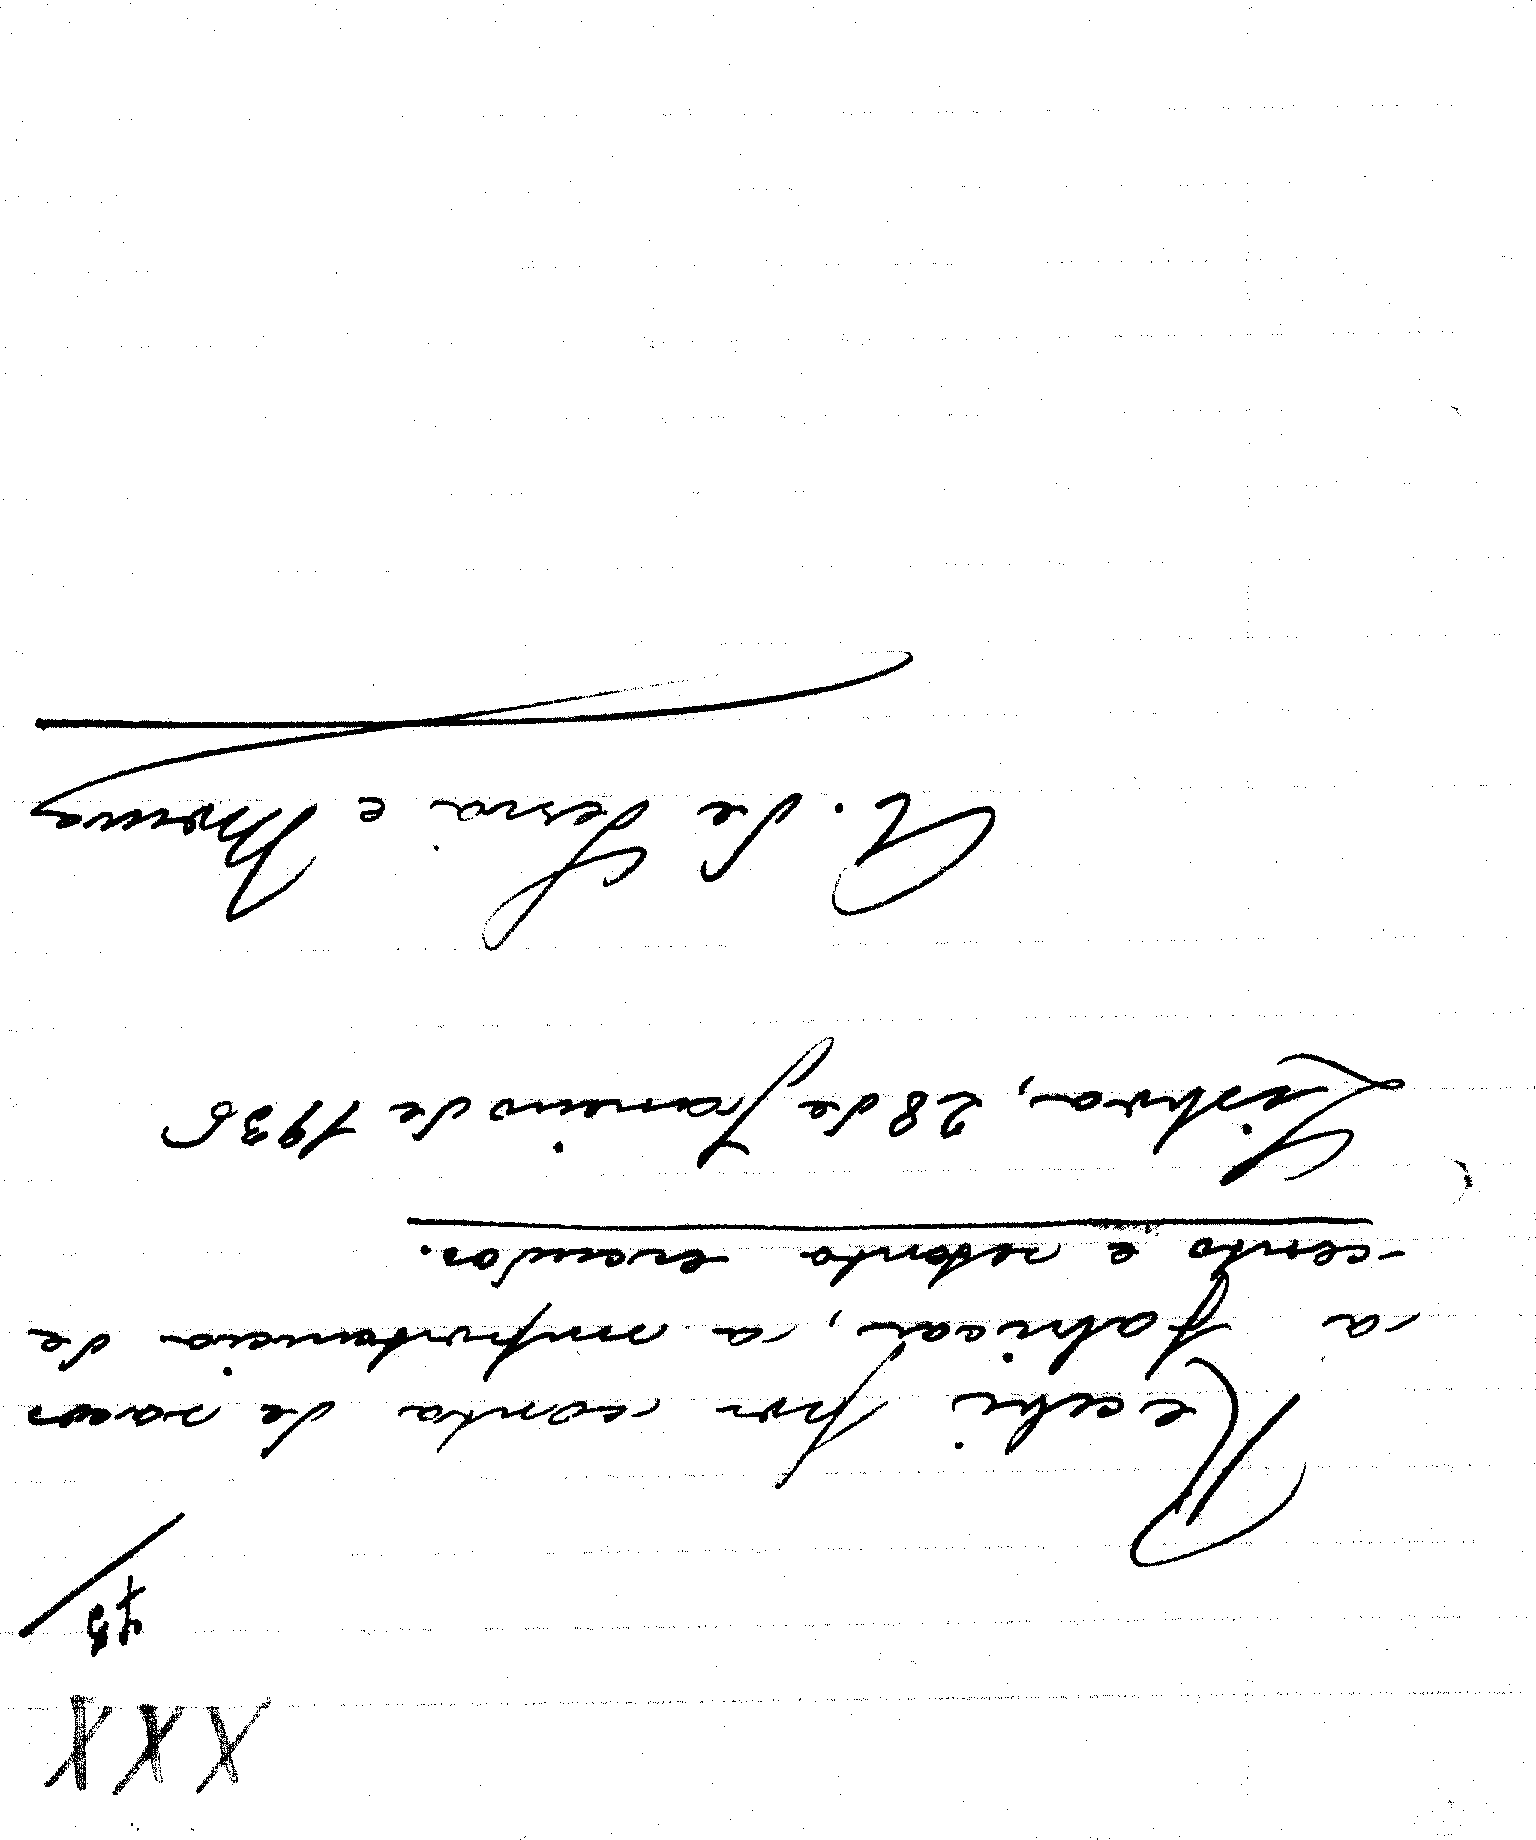 XXX
Recebi por conta de sacos
a fabricar, a importancia de
-cento e setenta escudos.
Lisboa, 28 de Janeiro de 1935
A. de Serra e Moura